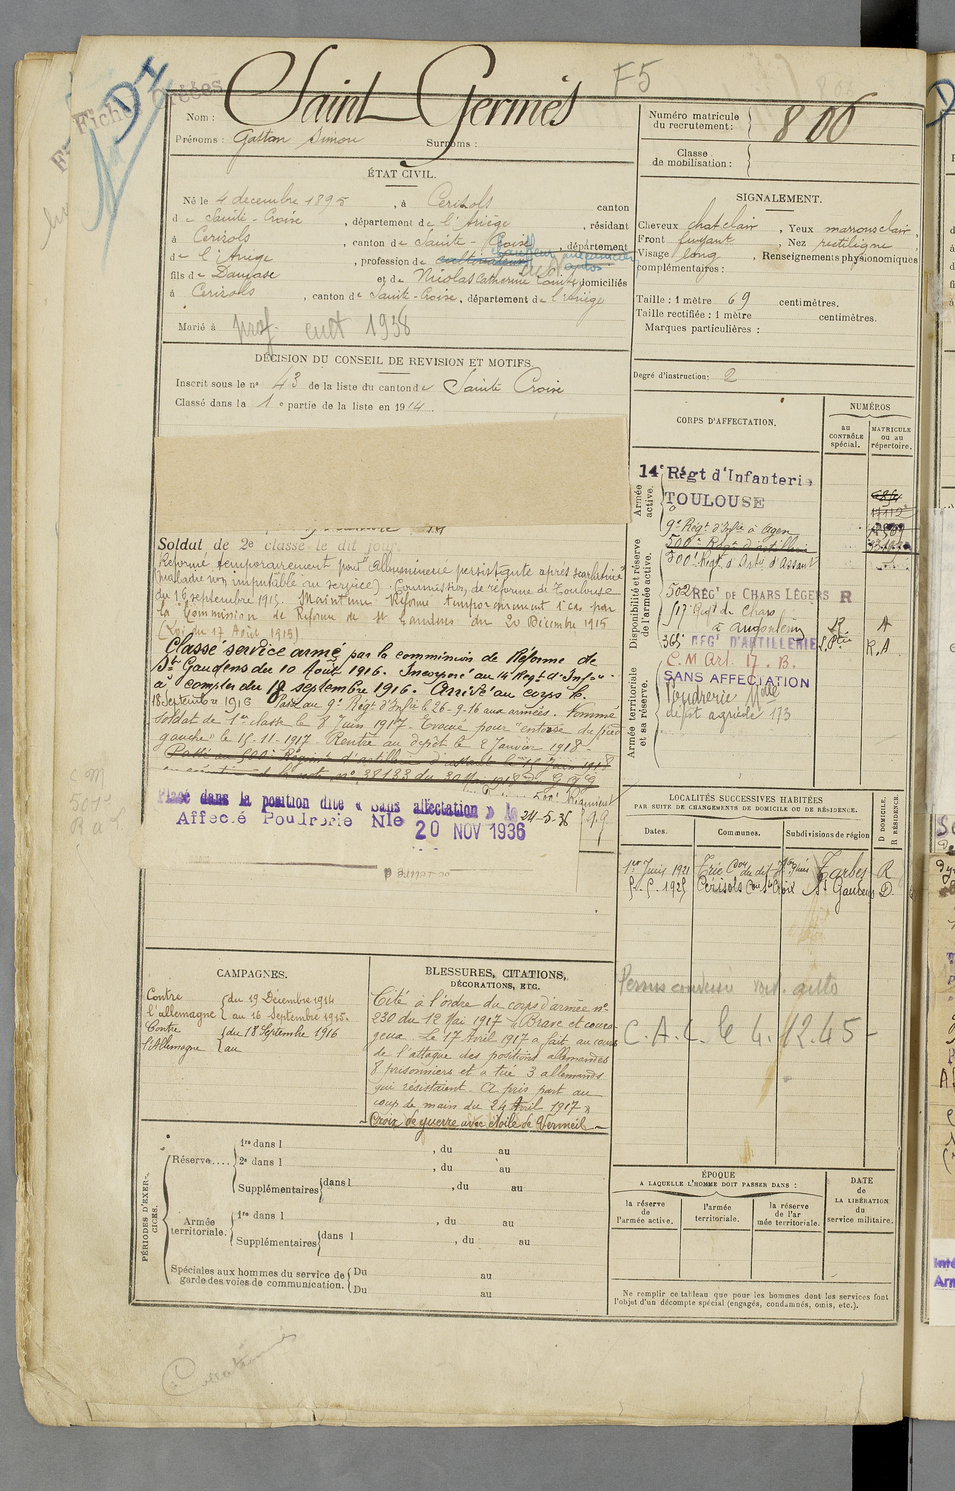 F5
Fiche
Nom : Saint Germès
Prénoms : Gaëtan Simon Surnoms :
Numéro matricule du recrutement : 806
Classe de mobilisation :
ÉTAT CIVIL.
Né le 4 décembre 1895, à Cérizols canton
de Sainte-Croise, département de l'Ariège, résidant
à Cerizols, canton de Sainte-Croise, département
de l'Ariège, profession de cultivateur
fils de Dangase et de Nicolas Catherine domiciliés
à Cerizols, canton de Sainte-Croise, département de l'Ariège
Marié à
prof. cult 1938
SIGNALEMENT.
Cheveux chat clair, Yeux marrons clair,
Front fuyant, Nez rectiligne
Visage long, Renseignements physionomiques
complémentaires :
Taille : 1 mètre 69 centimètres.
Taille rectifiée : 1 mètre centimètres.
Marques particulières :
Degré d'instruction : 2
DÉCISION DU CONSEIL DE REVISION ET MOTIFS.
Inscrit sous le n° 43 de la liste du canton de Sainte Croise
Classé dans la 1e partie de la liste en 1914.
Soldat de 2e classe le dit jour.
Réformé temporairement pour "Albuminurie persistante après scarlatine"
(maladie non imputable au service). Commission de réforme de Toulouse
du 16 septembre 1915. Maintenu Réformé temporairement 1e cas par
la Commission de Réforme de St Gaudens du 20 Décembre 1915
(Loi du 17 Août 1915)
Classé service armé par la commission de Réforme de
St Gaudens du 10 Août 1916. Incorporé au 14e Regt d'Infie
à compter du 18 septembre 1916. Arrivé au corps le
18 Septembre 1916 Passé au 9e Régt d'Infie le 26-9-16 aux armées. Nommé
soldat de 1re classe le 8 Juin 1917. Evacué pour "entorse du pied
gauche" le 15-11-1917. Rentré au dépôt le 2 Janvier 1918 -
Passé au 500e Régiment d'artillerie d'assaut le 15 Juin 1918
n° 38133 du
Placé dans la position dite « Sans affectation » le 24-5-36
Affecté Poudrerie Nle 20 NOV 1936
CORPS D'AFFECTATION.
NUMÉROS
au CONTRÔLE spécial.
MATRICULE ou au répertoire.
Armée active.
14e Régt d'Infanterie
TOULOUSE
9e Régt d'Infie à Agen
Disponibilité et réserve de l'armée active.
500e Régt d'artillerie
500e Régt d'Arty d'Assaut
502 RÉGt de CHARS LÉGERS R
517e Régt de Chars
à Angoulême R A
365 REGt D'ARTILLERIE R.A
C.M Art. 17. B.
Armée territoriale et sa réserve.
SANS AFFECTATION
Poudrerie Nelle
dépot agricole 173
LOCALITÉS SUCCESSIVES HABITÉES
PAR SUITE DE CHANGEMENTS DE DOMICILE OU DE RÉSIDENCE.
Dates. Communes. Subdivisions de région
D DOMICILE.
R RÉSIDENCE.
1er Juin 1921 Trie Con du dit Tarbes R
1925 Cérisols Con Ste Croix St Gaudens D
Permis conduire auto
C.A.C. le 4.12.45
CAMPAGNES.
Contre l'allemagne du 19 Décembre 1914
au 16 Septembre 1915.
Contre l'Allemagne du 18 Septembre 1916
au
BLESSURES, CITATIONS,
DÉCORATIONS, ETC.
Cité à l'ordre du corps d'armée n°
230 du 12 Mai 1917 "Brave et coura-
geux. Le 17 Avril 1917 a fait au cours
de l'attaque des positions allemandes
8 prisonniers et a tué 3 allemands
qui résistaient. A pris part au
coup de main du 24 Avril 1917"
Croix de guerre avec étoile de Vermeil
PÉRIODES D'EXERCICES.
Réserve....
1re dans l , du au
2e dans l , du au
Supplémentaires dans l , du au
Armée territoriale.
1re dans l , du au
Supplémentaires dans l , du au
Spéciales aux hommes du service de garde des voies de communication.
Du au
Du au
ÉPOQUE
A LAQUELLE L'HOMME DOIT PASSER DANS :
la réserve de l'armée active.
l'armée territoriale.
la réserve de l'armée territoriale.
DATE de LA LIBÉRATION du service militaire.
Ne remplir ce tableau que pour les hommes dont les services font
l'objet d'un décompte spécial (engagés, condamnés, omis, etc.).